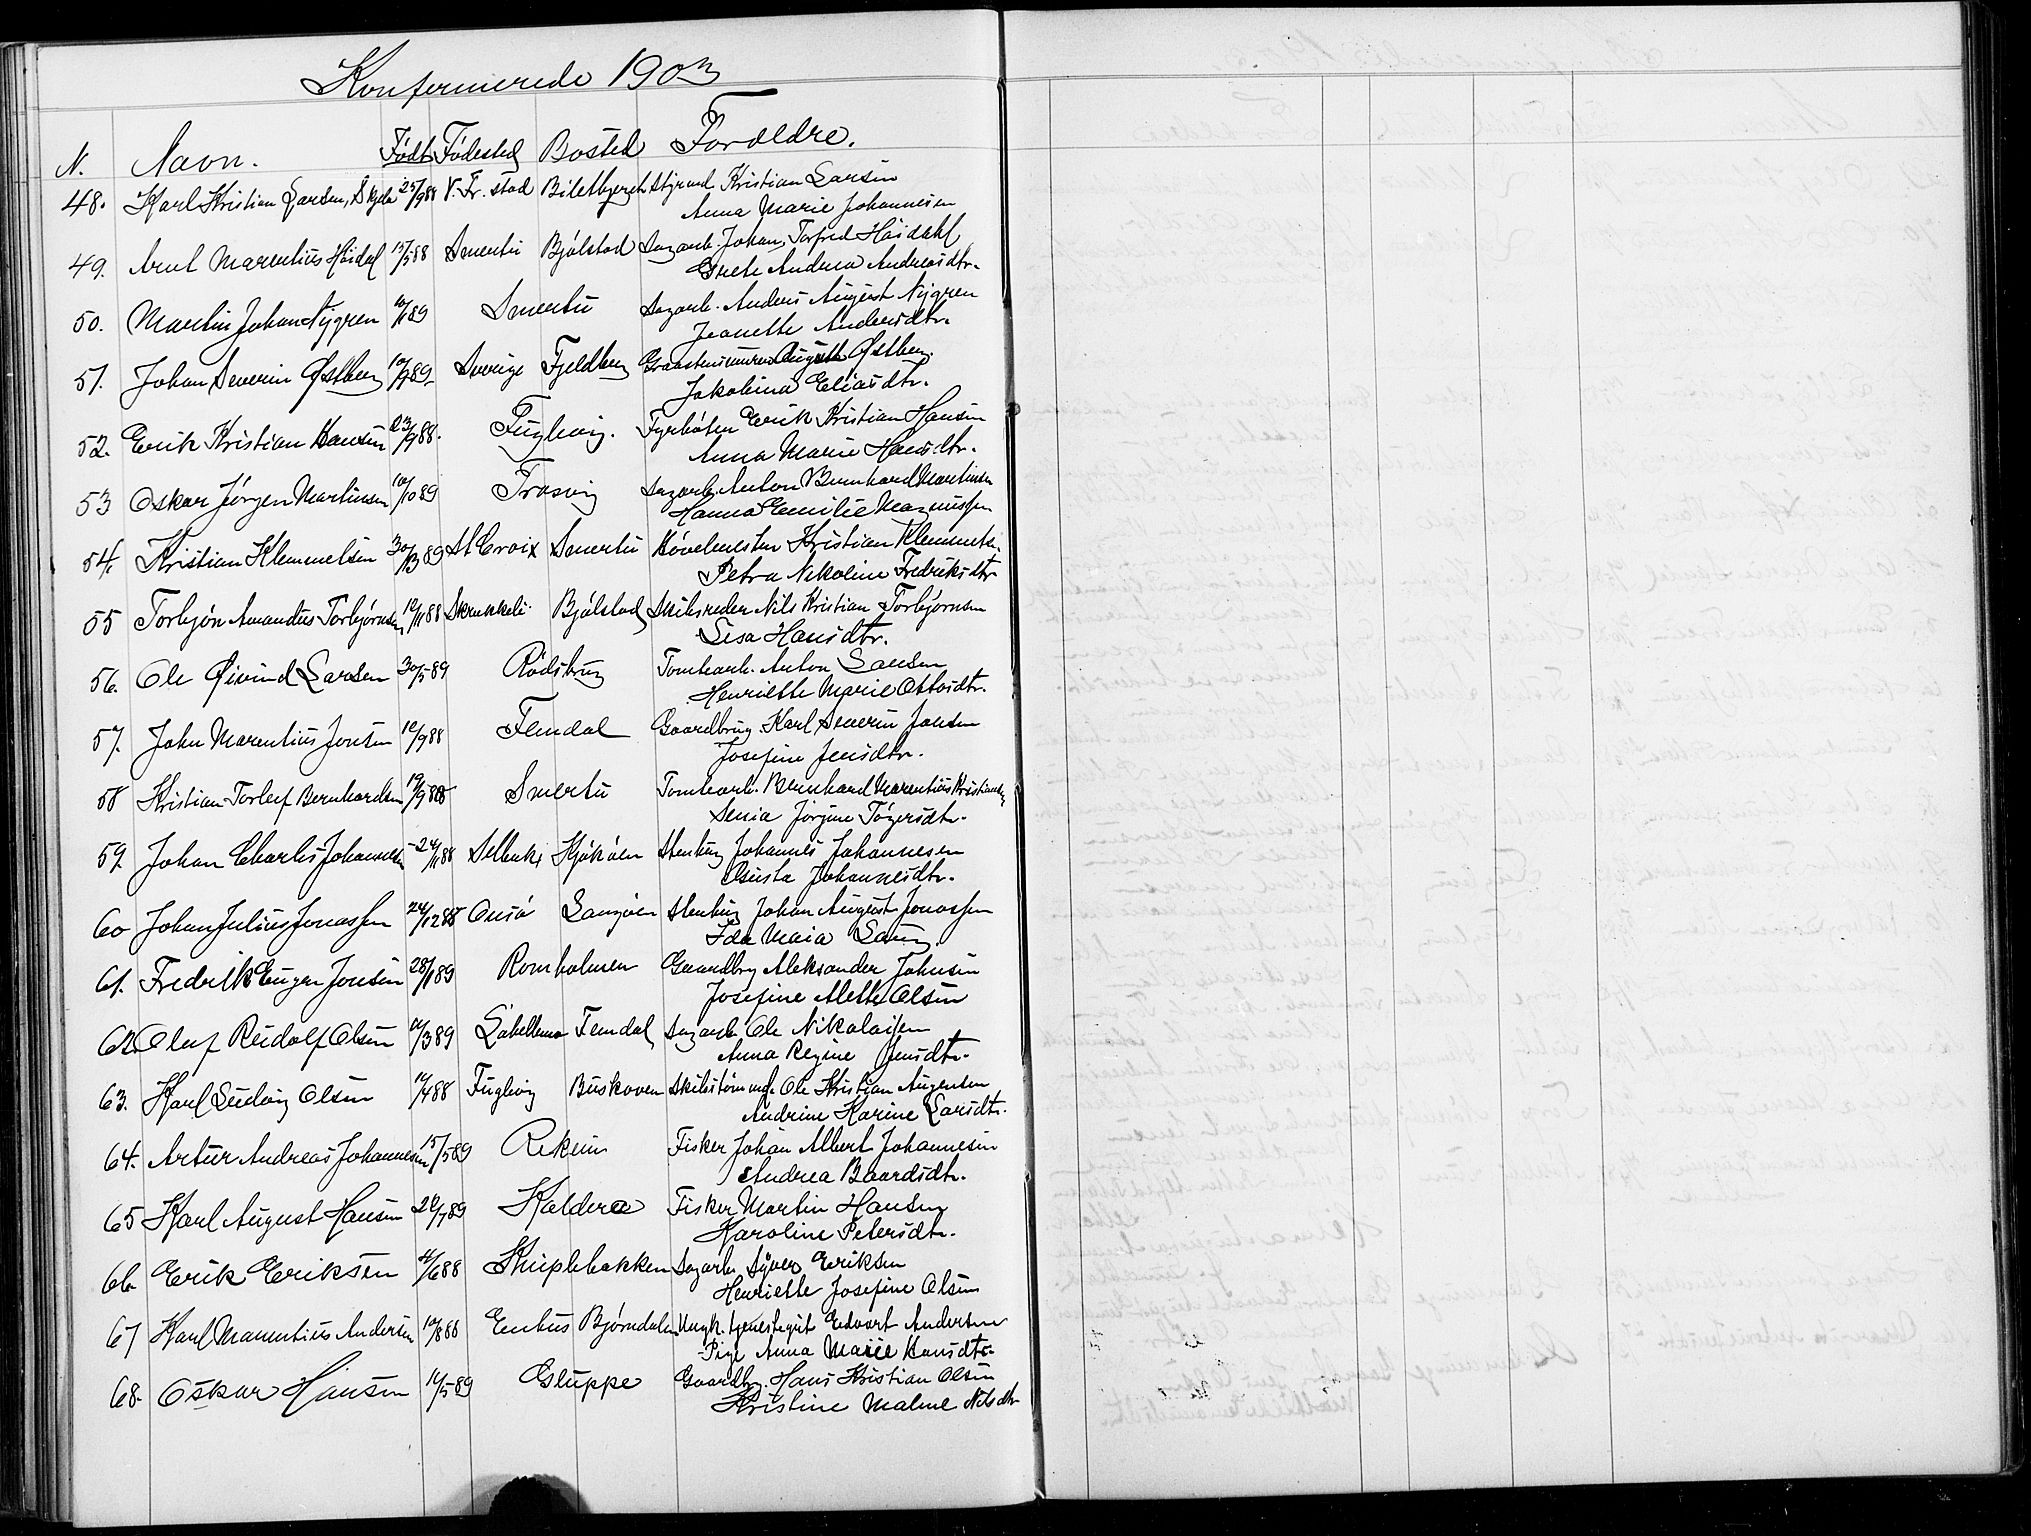 Konfirmerede 1903
N. Navn. Født Fødested Bosted Foreldre.
48. Karl Kristian Larsen, Skjela 25/9 88 V. Fr. stad Stýrmd Kristian Larsen
Anna Marie Johannesen
49. Arnt Marentius Høidal 15/5 88 Smertu Bjølstad Sagarb. Johan Torfred Høidahl
Grete Andrea Andreasdtr.
50. Martin Johan Nýgren 10/1 89 Smertu Sagarb. Anders August Nýgren
Jeanette Andersdtr.
51. Johan Severin Østberg 10/9 89 Sverige Fjeldberg August Østberg.
Jakobina Eliasdtr.
52. Erik Kristian Hansen 23/9 88. Fuglevig. Fyrbøter Erik Kristian Hansen
Anna Marie Hansdtr.
53 Oskar Jørgen Martinsen 10/10 89 Trosvig Sagarb. Anton Bernhard Martinsen
Hanna Emilie Magnussen
54. Kristian Klemmetsen 30/3 89 St Croix Smertu Høvelmester Kristian Klemmetsen
Petra Nikoline Fredriksdtr
55 Torbjøn Amandus Torbjørnsen 12/11 88 Skrukkeli Bjølstad Skibsreder Nils Kristian Torbjørnsen
Lisa Hansdtr.
56. Ole Øivind Larsen 30/5 89 Rødsbrug Tomtearb. Anton Larsen
Henriette Marie Ottosdtr.
57. John Marentius Jensen 10/9 88 Femdal Gaardbrug. Karl Severin Jensen
Josefine Jensdtr.
58 Kristian Torleif Bernhardsen 19/9 88 Smertu Tomtearb. Bernhard Marentius Kristiansen
Senia Jørgine Tøgersdtr.
59 Johan Charles Johannesen 24/11 88 Selbak Kjøkøen Stenhug Johannes Johannesen
Johannesdtr.
60 Johan Julius Jonassen 24/12 88 Onsø Stenhug Johan August Jonassen
Ida Maia
61. Fredrik Eugen Jensen 28/1 89 Romholmen Gaardbrg Aleksander Johnsen
Josefine Alette Olsen
62. Oluf Rudolf Olsen /3 89 Labellmo Femdal Sagarb Ole Nikolaisen
Anna Regine Jensdtr.
63. Karl Ludvig Olsen /4 88 Fuglevig Buskoven Skibstømmd. Ole Kristian Augensen
Andrine Karine Larsdtr.
64. Artur Andreas Johannesen 15/5 89 Rekum Fisker Johan Albert Johannesen
Andrea Baardsdtr.
65 Karl August Hansen /7 89 Kaldera Fisker Martin Hansen
Karoline Petersdtr.
66. Erik Eriksen /6 88 Kniplebakken Sagarb Sýver Eriksen
Henriette Josefine Olsen
67 Karl Marentius Andersen 10/8 88 Enhus Bjørndalen Ungk. tjenestegut Edvart Andersen
Pige Anna Marie Hansdtr.
68. Oskar Hansen /5 89 Gluppe Gaardbr. Hans Kristian Olsen
Kristine Malene Nilsdtr